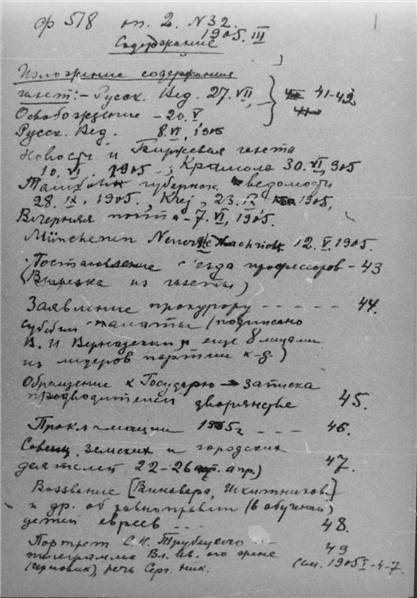 ф 518 оп. 2. N 32.
1905. III
Содержание
1
Изложение содержания
газет: - Русск. Вед. 27. VII
41-42
Освобождение - 20. V
Русск. Вед. 8. VI, 1905
Новости и Биржевая газета
10. VI. 1905, Крамола 30. VI, 1905
губернск. ведомости
28. IX, 1905, Kraj, 23. IX 1905,
Вечерняя почта - 7. VI, 1905.
München 12. V. 1905.
Постановление съезда профессоров - 43
(Вырезка из газеты)
Заявление прокурору - - - - - 44.
судебн. палаты (подписано
В. И Вернадским и еще 8 лицами
из лидеров партии к-д.)
Обращение к Государю - записка
предводителей дворянства 45.
Прокламации 1905 г - - - - 46.
Совещ. земских и городских
деятелей 22-26 апр) 47.
Воззвание [Винавера,
и др. об равноправии (в обучении)
детей евреев - - - 48.
Портрет С. Н. Трубецкого - 49
телеграмма Вл. Ив. его жене
(черновик), речь Серг. Ник. (см. 1905 I - 4-7.